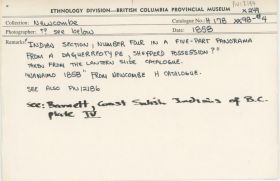 PN12189
ETHNOLOGY DIVISION—BRITISH COLUMBIA PROVINCIAL MUSEUM
Collection: Newcombe Catalogue No: H 178
Photographer: ?? see below Date: 1858
Remarks: "INDIAN SECTION; NUMBER FOUR IN A FIVE-PART PANORAMA
FROM A DAGUERREOTYPE, SHEPPERD POSSESSION?"
TAKEN FROM THE LANTERN SLIDE CATALOGUE.
"NANAIMO 1858" FROM NEWCOMBE H CATALOGUE.
SEE ALSO PN12186
see: Barnett, Coast Salish Indians of B.C.
plate IV